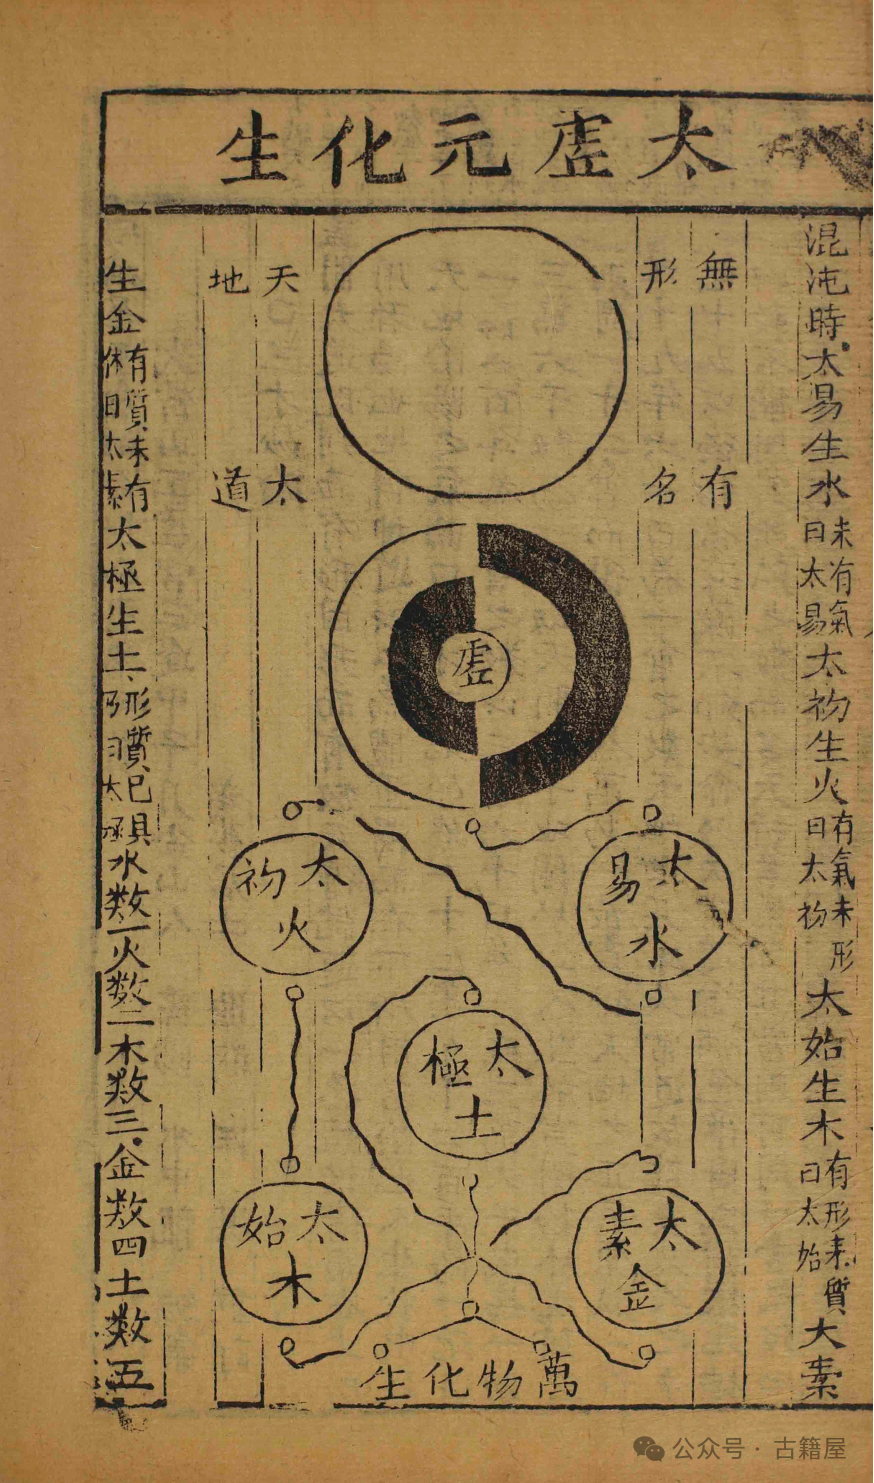 太虗元化生
混沌時太易生水未有氣曰太易太初生火有氣未形曰太初太始生木有形未質曰太始太素
無形
有名
天地
太道
虗
太易水
太初火
太極土
太素金
太始木
萬物化生
生金有質未有体曰太素太極生土形質已具乃曰太極水数一火数二木数三金数四土数五
公众号·古籍屋